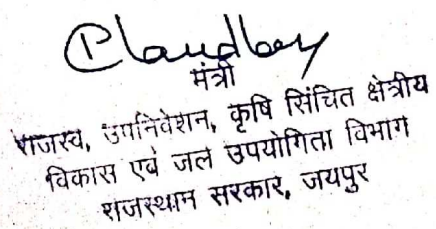 PChaudhary
मंत्री
राजस्व, उपनिवेशन, कृषि सिंचित क्षेत्रीय
विकास एवं जल उपयोगिता विभाग
राजस्थान सरकार, जयपुर